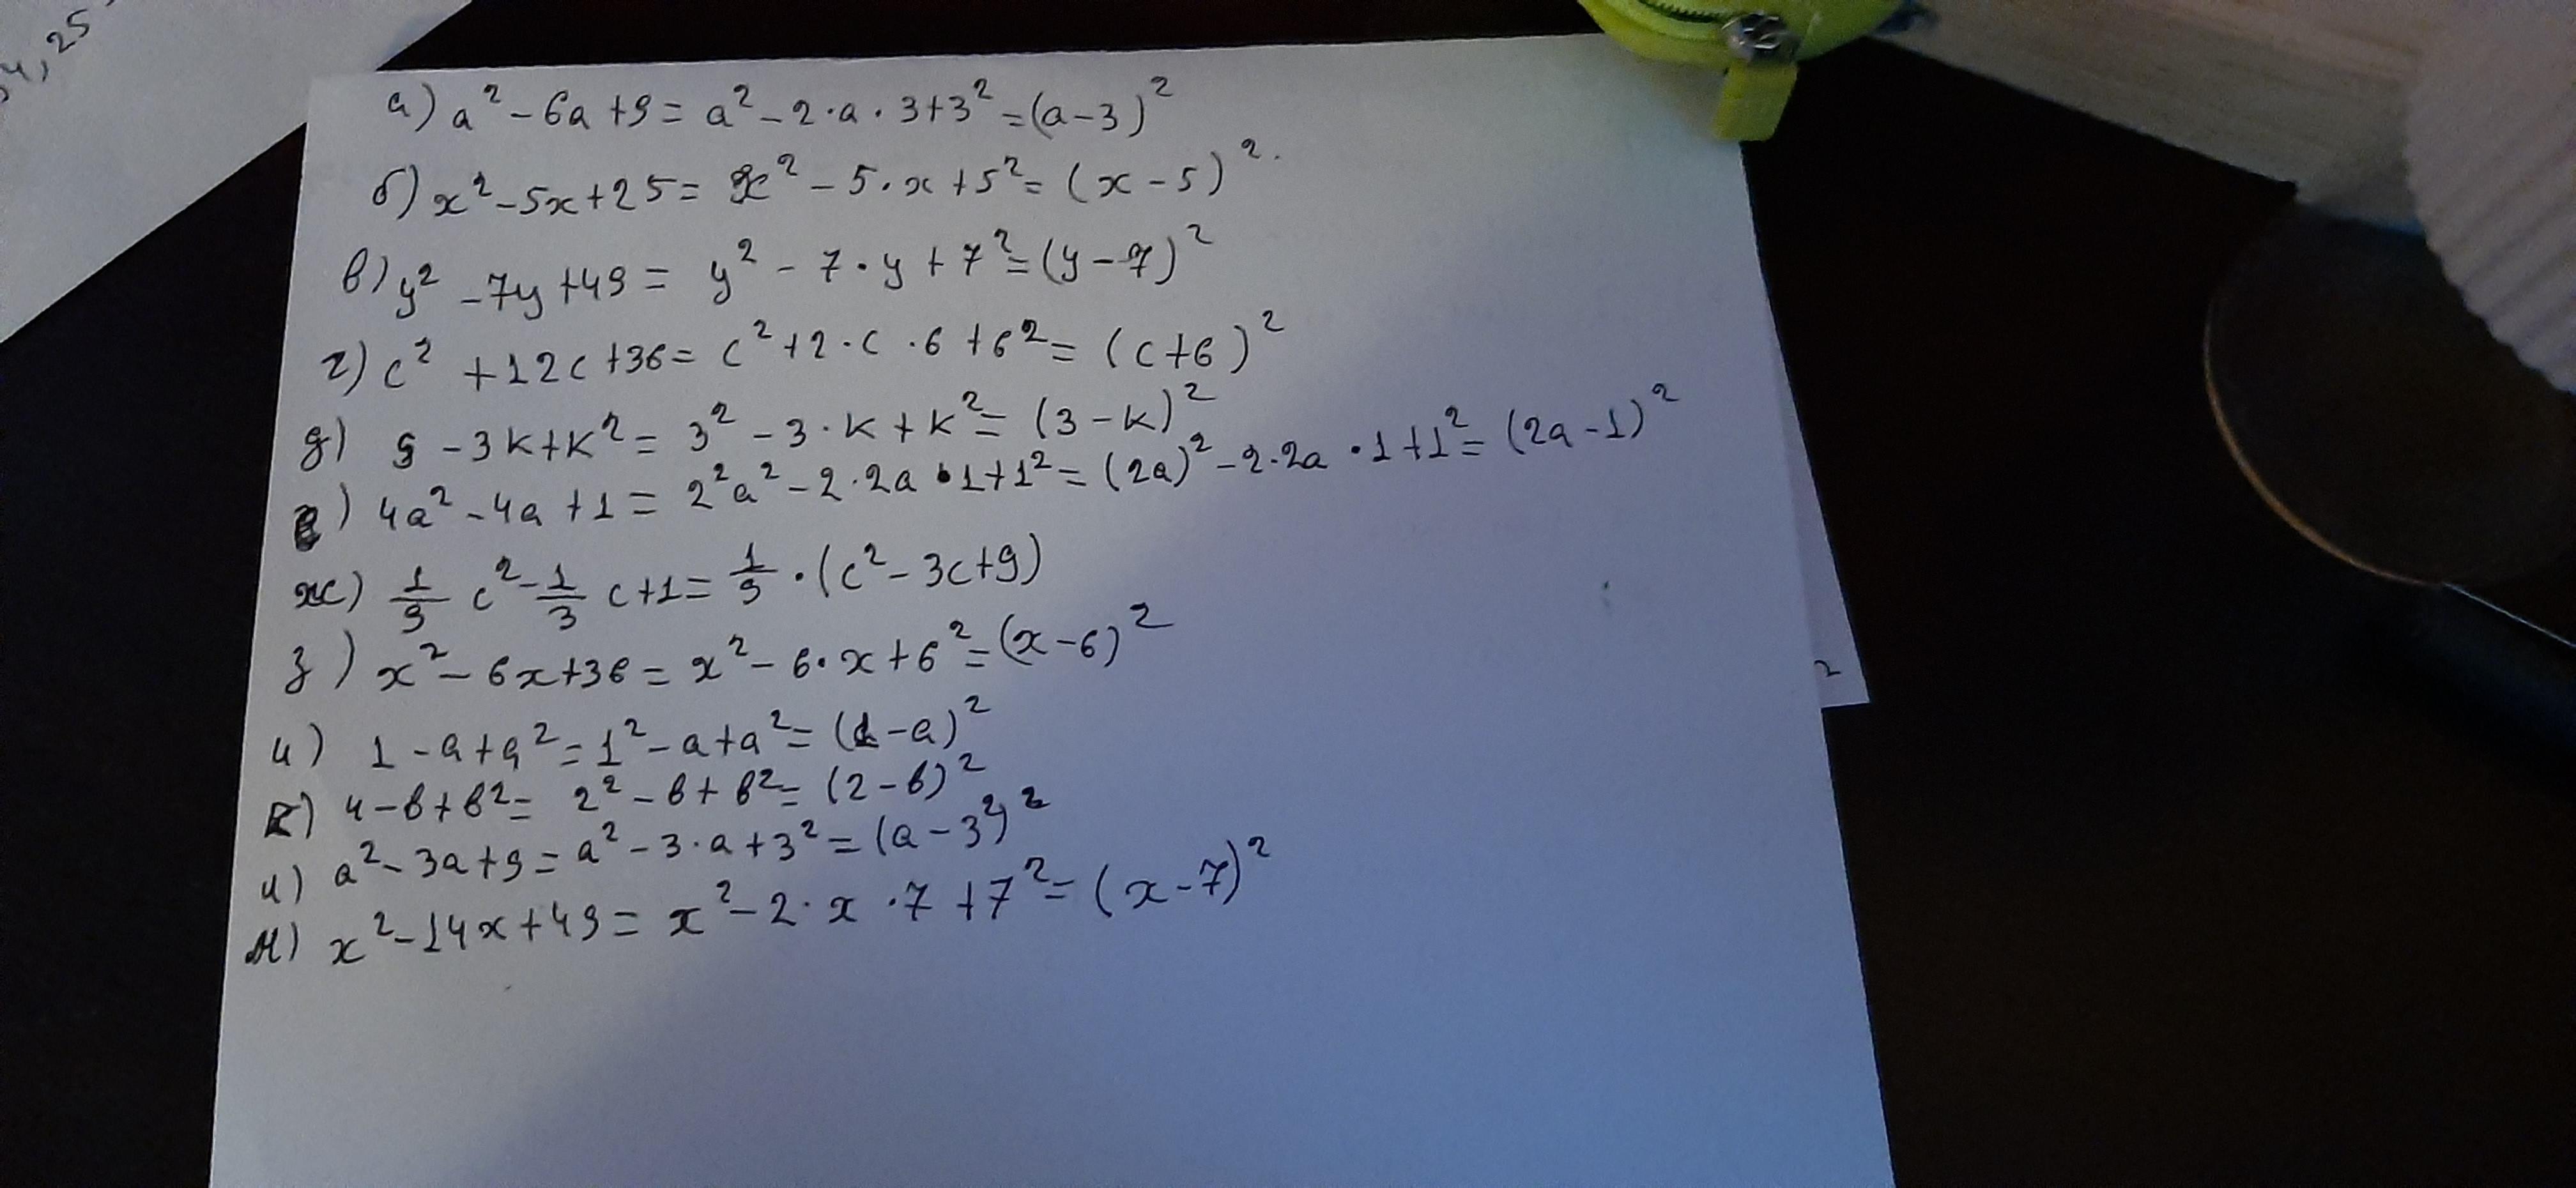 4,25
а) a² - 6a + 9 = a² - 2·a·3 + 3² = (a-3)²
б) x² - 5x + 25 = x² - 5·x + 5² = (x-5)².
в) y² - 7y + 49 = y² - 7·y + 7² = (y-7)²
г) c² + 12c + 36 = c² + 2·c·6 + 6² = (c+6)²
д) 9 - 3k + k² = 3² - 3·k + k² = (3-k)²
е) 4a² - 4a + 1 = 2²a² - 2·2a·1 + 1² = (2a)² - 2·2a·1 + 1² = (2a-1)²
ж) 1/9 c² - 1/3 c + 1 = 1/9·(c² - 3c + 9)
з) x² - 6x + 36 = x² - 6·x + 6² = (x-6)²
и) 1 - a + a² = 1² - a + a² = (1-a)²
к) 4 - b + b² = 2² - b + b² = (2-b)²
и) a² - 3a + 9 = a² - 3·a + 3² = (a-3²)²
м) x² - 14x + 49 = x² - 2·x·7 + 7² = (x-7)²
2